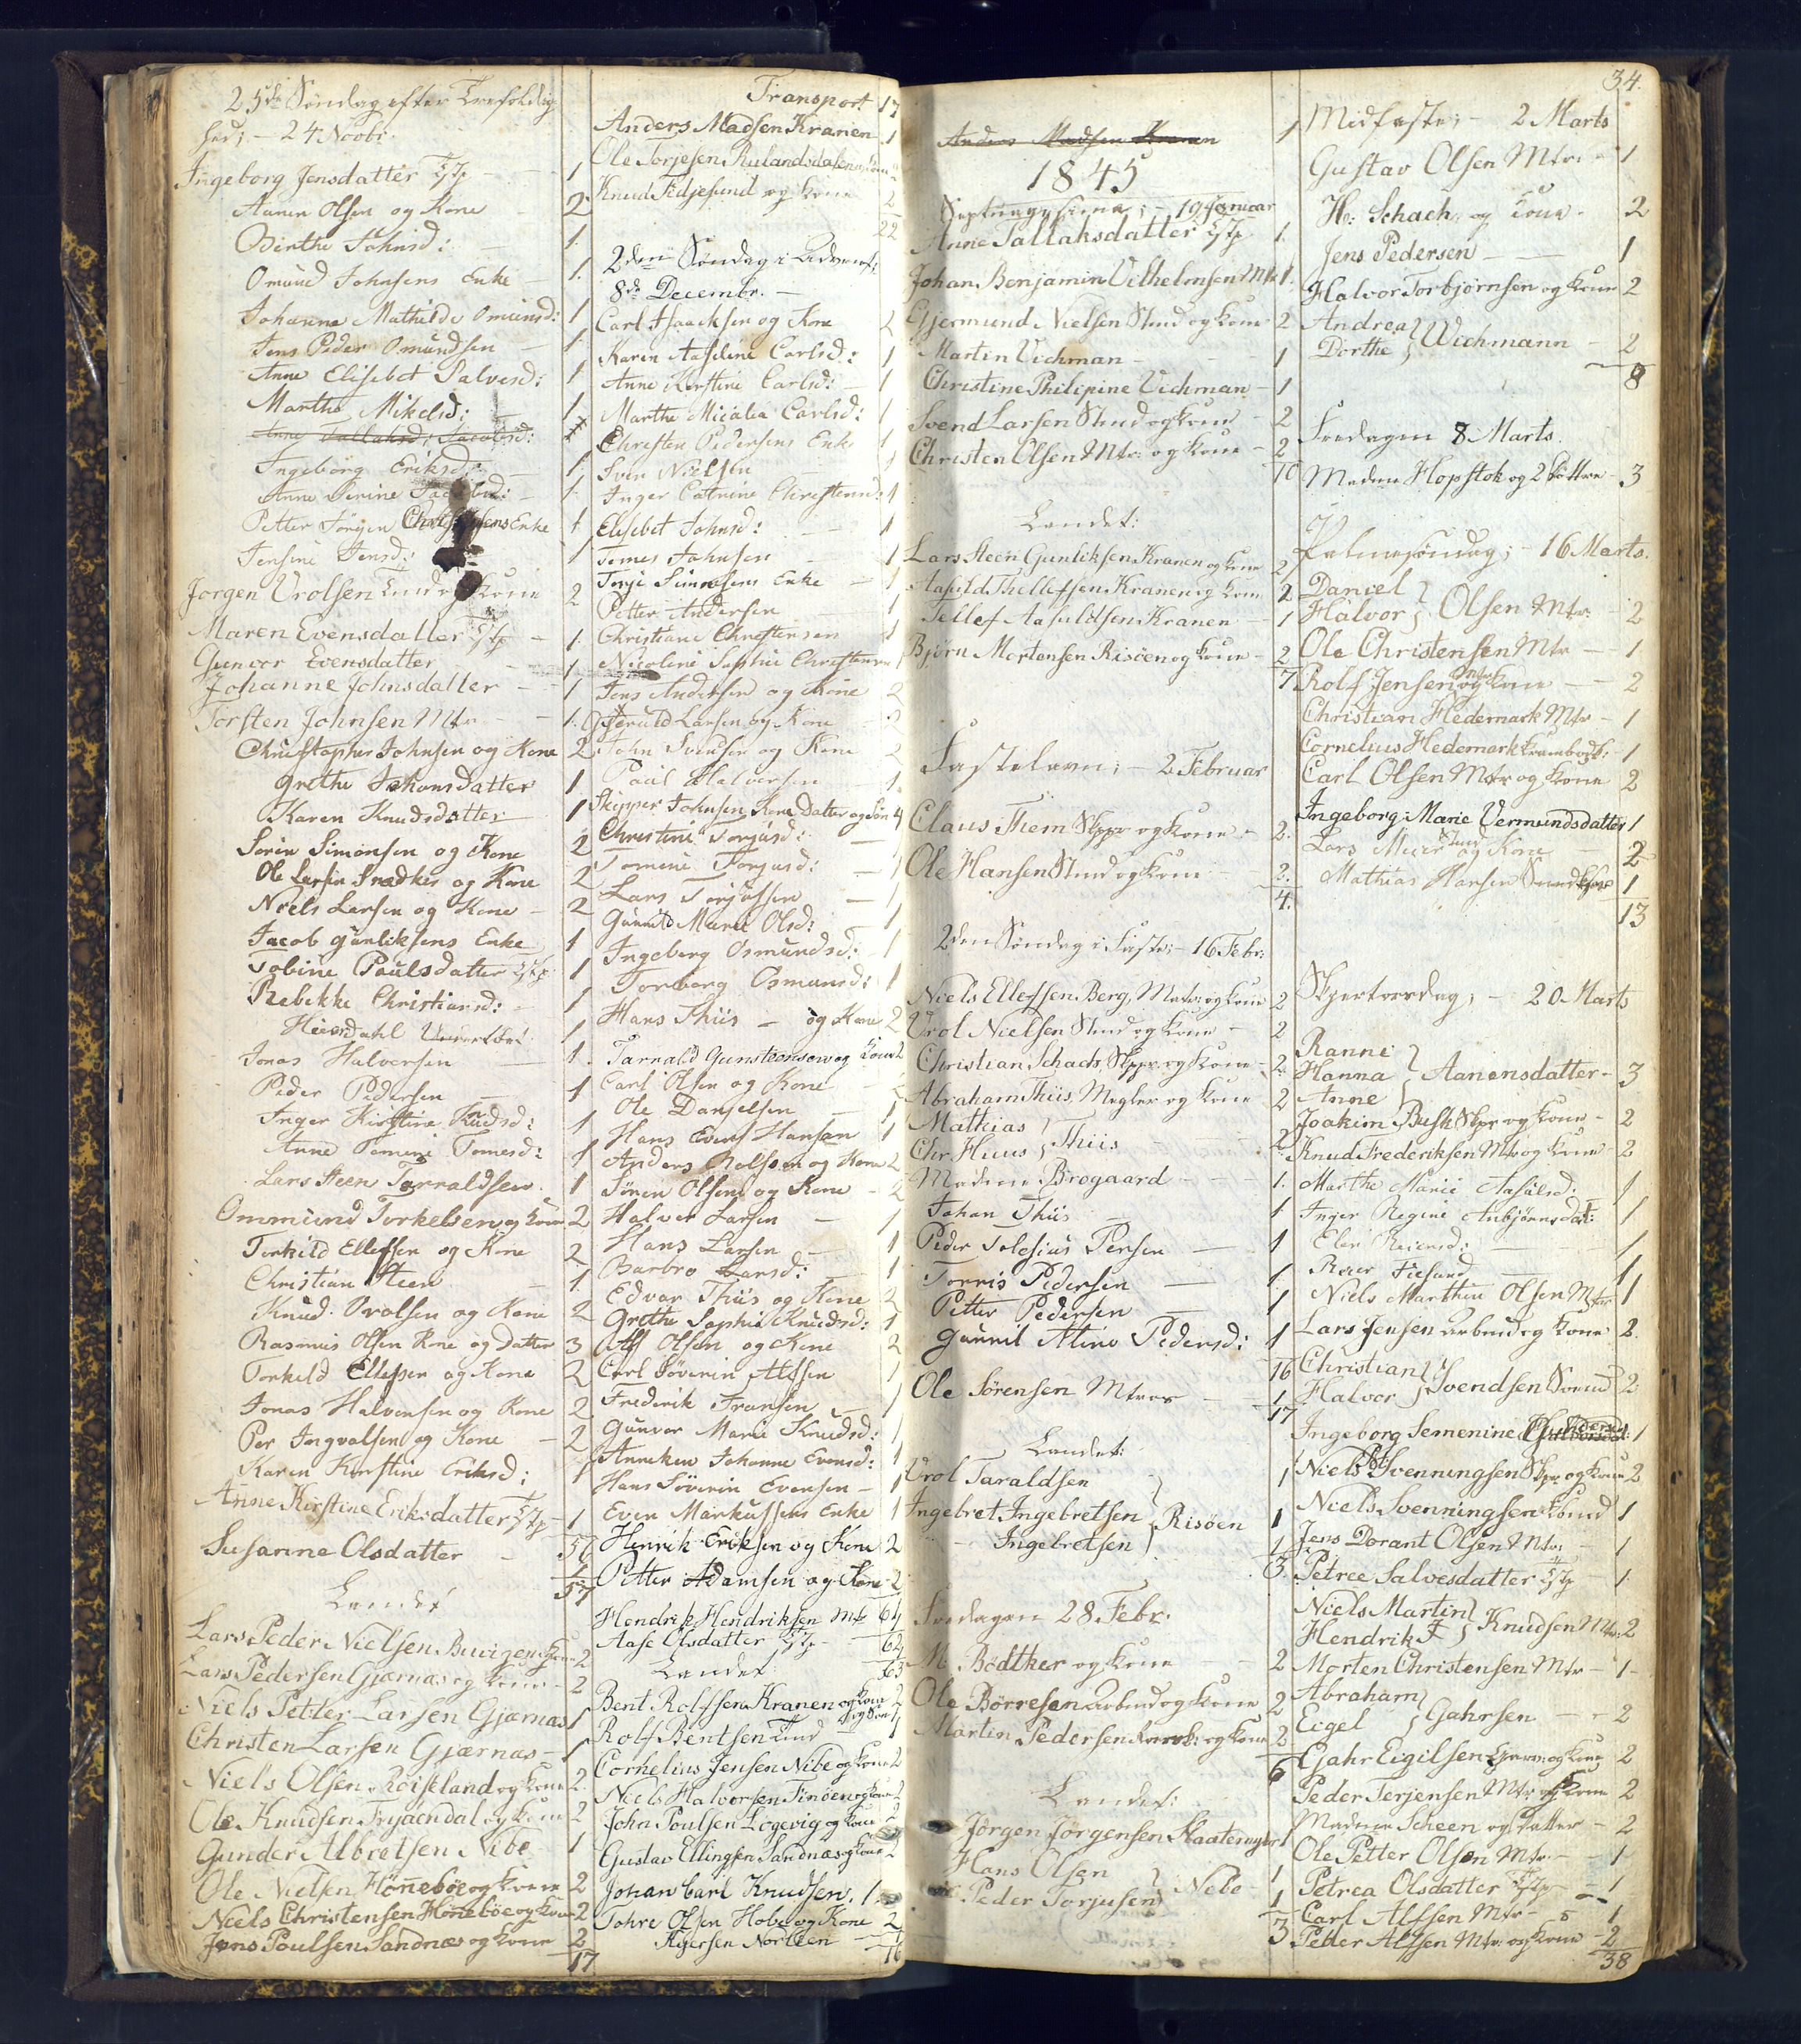 25de Søndag efter Trefoldig
hed; - 24 Novbr.
Ingeborg Jensdatter Tjtp - 1
Aanen Olsen og Kone - 2
Birthe Johnsd: - 1.
Omund Johnsens Enke - 1.
Johanne Mathilde Omunsd: 1
Jens Peder Omundsen - 1.
Anne Elisebet Salvesd: 1
Marthe Mikelsd: 1
Anne Tallaksd: Jacobsd: 1
Ingeborg Eriksd: - 1.
Anne Serine Jacobsd: - 1.
Petter Jørgen Christophersens Enke 1
Jensine Jensd: 1
Jorgen Vrolsen Lund og Kone 2
Maren Evensdatter Tjtp - 1.
Gunvor Evensdatter - 1
Johanne Johnsdatter - - 1
Torsten Johnsen Mtr - - 1.
Christopher Johnsen og Kone 2
Grethe Johansdatter 1
Karen Knudsdatter 1
Sørin Simonsen og Kone 2
Ole Larsen Snedker og Kone 2
Niels Larsen og Kone - 2
Jacob Gunliksens Enke 1
Tobine Paulsdatter Tjtp 1
Rebekke Christiansd: - 1
Hierdahl 1
Jonas Halversen 1.
Peder Pedersen 1
Inger Kirstine Knudsd: 1
Anne Tomine Tomesd: 1
Lars Steen Tarraldsen 1
Ommund Torkelsen og Kone 2
Torkild Ellefsen og Kone 2
Christian Steen 1.
Knud Vrolsen og Kone 2
Rasmus Olsen Kone og Datter 3
Torkeld Ellefsen og Kone 2
Jonas Halvorsen og Kone 2
Per Ingvalsen og Kone - 2
Karen Kirstine Eriksd; 1
Anne Kirstine Eriksdatter Tjtp - 1
56
Susanne Olsdatter - 1
57
Landet
Lars Peder Nielsen Buvigen og Kone 2
Lars Pedersen Gjærnæs og Kone - 2
Niels Petter Larsen Gjærnæs 1
Christen Larsen Gjærnæs - 1
Niels Olsen Röiseland og Kone 2
Ole Knudsen og Kone 2
Gunder Albretsen Nibe 1
Ole Nielsen Hönnebøe og Kone 2
Niels Christensen Hönnebøe og Kone 2
Jens Poulsen Sandnæs og Kone 2
17
Transport 17
Anders Madsen Kranen 1
Ole Torjesen Rulandsdalen og Kone 2
Knud Fidjesund og Kone 2
22
2den Søndag i Advent;
8de Decembr. -
Carl Isaacksen og Kone 2
Karen Aaseline Carlsd: 1
Anne Kirstine Carlsd: - 1
Marthe Micalia Carlsd: 1
Christen Pedersens Enke 1
Sven Nielsen - 1
Inger Catrine Christensd: 1
Elisebet Johnsd: - 1
Tomes Johnsen - 1
Terje Simonsens Enke - 1
Petter Andersen 1
Christiane Christensen 1
Nicoline Sophie Christensen 1
Jens Andersen og Kone 2
Gjeruld Larsen og Kone 2
John Svendsen og Kone 2
Paul Halversen 1.
Skipper Johnsen Kone Datter og Søn 4
Christine Torjusd: - 1
Tomine Torjusd: - 1
Lars Torjussen - 1
Gunnild Marie Olsd: 1
Ingeborg Osmundsd: - 1
Torborg Osmunsd: 1
Hans Thiis - og Kone 2
Tarrald Gunsteensen og Kone 2
Carl Olsen og Kone 2
Ole Danielsen - 1
Hans Even Hansen 1
Anders Rolfsen og Kone 2
Søren Olsen og Kone - 2
Halvor Larsen - 1
Hans Larsen - 1
Barbro Larsd: - 1
Edvar Thiis og Kone 2
Grethe Sophie Knudsd: 1
Alf Olsen og Kone 2
Carl Søverin Alfsen 1
Frederik Fransen - 1
Gunvor Marie Knudsd: 1
Anneken Johanne Evensd: 1
Hans Søverin Evensen - 1
Even Markussens Enke 1
Henrik Eriksen og Kone 2
Petter Adamsen og Kone - 2
Hendrik Hendriksen Mtr 61
Aase Olsdatter Tjtp - 62
Landet: 63
Bent Rolfsen Kranen og Kone 2
Rolf Bentsen Lund og Søn 1
Cornelius Jensen Nibe og Kone 2
Niels Halvorsen Tinöen og Kone 2
John Poulsen Logevig og Kone 2
Gustav Ellingsen Sandnæs og Kone 2
Johan Carl Knudsen. 1
Tohre Olsen Hobe og Kone 2
Agersen Norteen - 1
16
34.
Anders Madsen Kranen 1
1845
Septuagesima; - 19 Januar
Anne Tallaksdatter Tjtp 1.
Johan Benjamin Vilhelmsen Mtr 1.
Gjermund Nielsen Smd og Kone 2
Martin Vichman - - 1
Christine Philipine Vichman - 1
Svend Larsen Smd og Kone - 2
Christen Olsen Mtr: og Kone - 2
10
Landet:
Lars Steen Gunliksen Kranen og Kone 2
Aasuld Thellefsen Kranen og Kone 2
Tellef Aasuldsen Kranen - 1
Bjørn Mortensen Risöen og Kone - 2
7
Fastelavn; - 2 Februar
Claus Fiem Skppr og Kone - 2.
Ole Hansen Smd og Kone 2.
4.
2den Søndag i Faste: - 16 Febr:
Niels Ellefsen Berg, Matr: og Kone 2
Vrol Nielsen Smd og Kone - 2
Christian Schach, Skppr og Kone - 2.
Abraham Thiis, Megler og Kone 2
Mathias } Thiis
Chr Huus } 2.
Madme Brogaard - - - 1.
Johan Thiis 1
Peder Tolesius Persen - 1
Torris Pedersen - 1.
Petter Pedersen - 1
Gunnil Aline Pedersd: 1
16
Ole Sørensen Mtros - - 1
17
Landet:
Vrol Taraldsen } 1
Ingebret Ingebretsen } Risöen 1
- Ingebretsen } 1
3.
Fredagen 28 Febr:
M. Bødtker og Kone - - 2
Ole Börresen Arbmd og Kone 2
Martin Pedersen og Kone 2
6
Landet:
Jørgen Jørgensen Skaatemyhr 1
Hans Olsen } Nebe - 1
Peder Torjusen } 1
3
Midfaste; - 2 Marts
Gustav Olsen Mtr: - 1
Hr: Schach, og Kone. 2
Jens Pedersen - - 1
Halvor Torbjørnsen og Kone 2
Andrea } Wichmann - 2
Dorthe }
8
Fredagen 8 Marts.
Madme Hopstok og 2 Døttre - 3
Palmesøndag; - 16 Marts.
Daniel } Olsen Mtr. - 2
Halvor }
Ole Christensen Mtr - 1
Rolf Jensen Mtr og Kone - 2
Christian Hedemark Mtr - 1
Cornelius Hedemark - 1
Carl Olsen Mtr og Kone 2
Ingeborg Marie Vermundsdatter 1
Lars Meier Smd og Kone - 2
Mathias Hansen 1
13
Skjertorsdag; - 20 Marts
Ranni }
Hanna } Aanensdatter - 3
Anne }
Joakim Bush Skpr og Kone - 2
Knud Frederiksen Mtr og Kone - 2
Marthe Marie Aasulsd: 1
Inger Regine Anbjørnsdat: 1
Elen Reiersd: - 1
Reier Fiesund - 1
Niels Marthin Olsen Mtr 1
Lars Jensen Arbmd og Kone 2.
Christian } Svendsen Smd 2
Halvor }
Ingeborg Semenine Pedersd: 1
Niels Svenningsen Skpr og Kone 2
Niels Svenningsen 1
Jens Dorant Olsen Mtr: - 1
Petree Salvesdatter Tjtp - 1.
Niels Martin } Knudsen Mtr: 2
Hendrik F }
Morten Christensen Mtr - 1 -
Abraham } Gahrsen - - 2
Eigel }
Gahr Eigilsen og Kone 2
Peder Terjensen Mtr og Kone 2
Madme Scheen og Datter - 2
Ole Petter Olsen Mtr. - 1 -
Petrea Olsdatter Tjtp - 1
Carl Alfsen Mtr - 1
Peder Alfsen Mtr: og Kone - 2
38